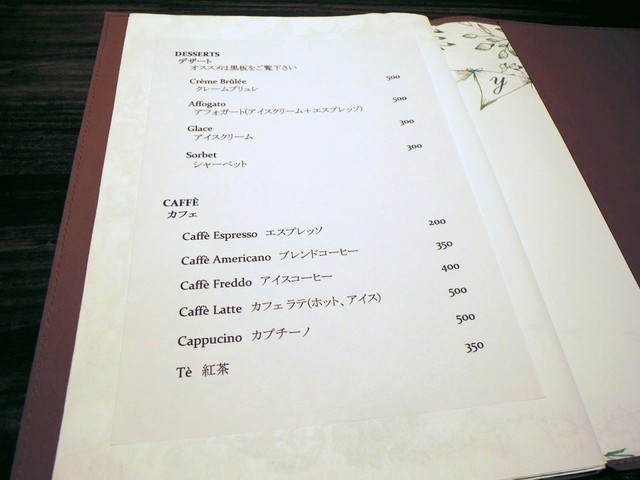 DESSERTS
デザート
オススメは黒板をご覧下さい
Crème Brûlée 500
クレームブリュレ
Affogato 500
アフォガート(アイスクリーム＋エスプレッソ)
Glace 300
アイスクリーム
Sorbet 300
シャーベット
CAFFÈ
カフェ
Caffè Espresso エスプレッソ 200
Caffè Americano ブレンドコーヒー 350
Caffè Freddo アイスコーヒー 400
Caffè Latte カフェラテ(ホット、アイス) 500
Cappucino カプチーノ 500
Tè 紅茶 350
y